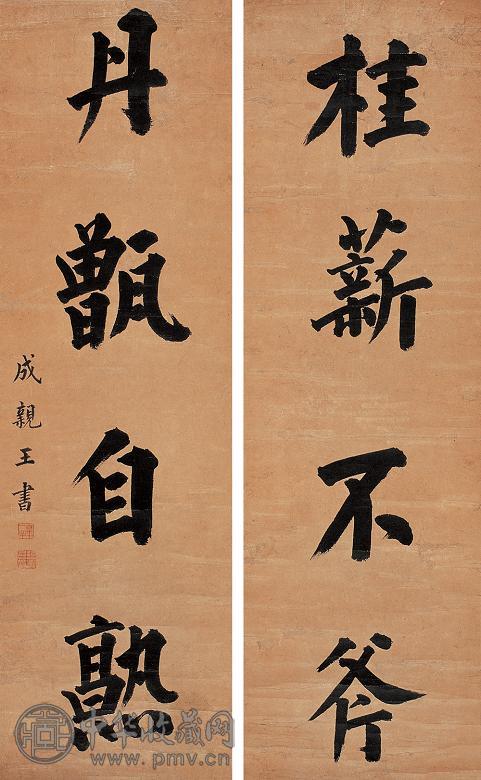 桂薪不斧
丹甑自熟
成親王書
中华收藏网
www.pmv.cn